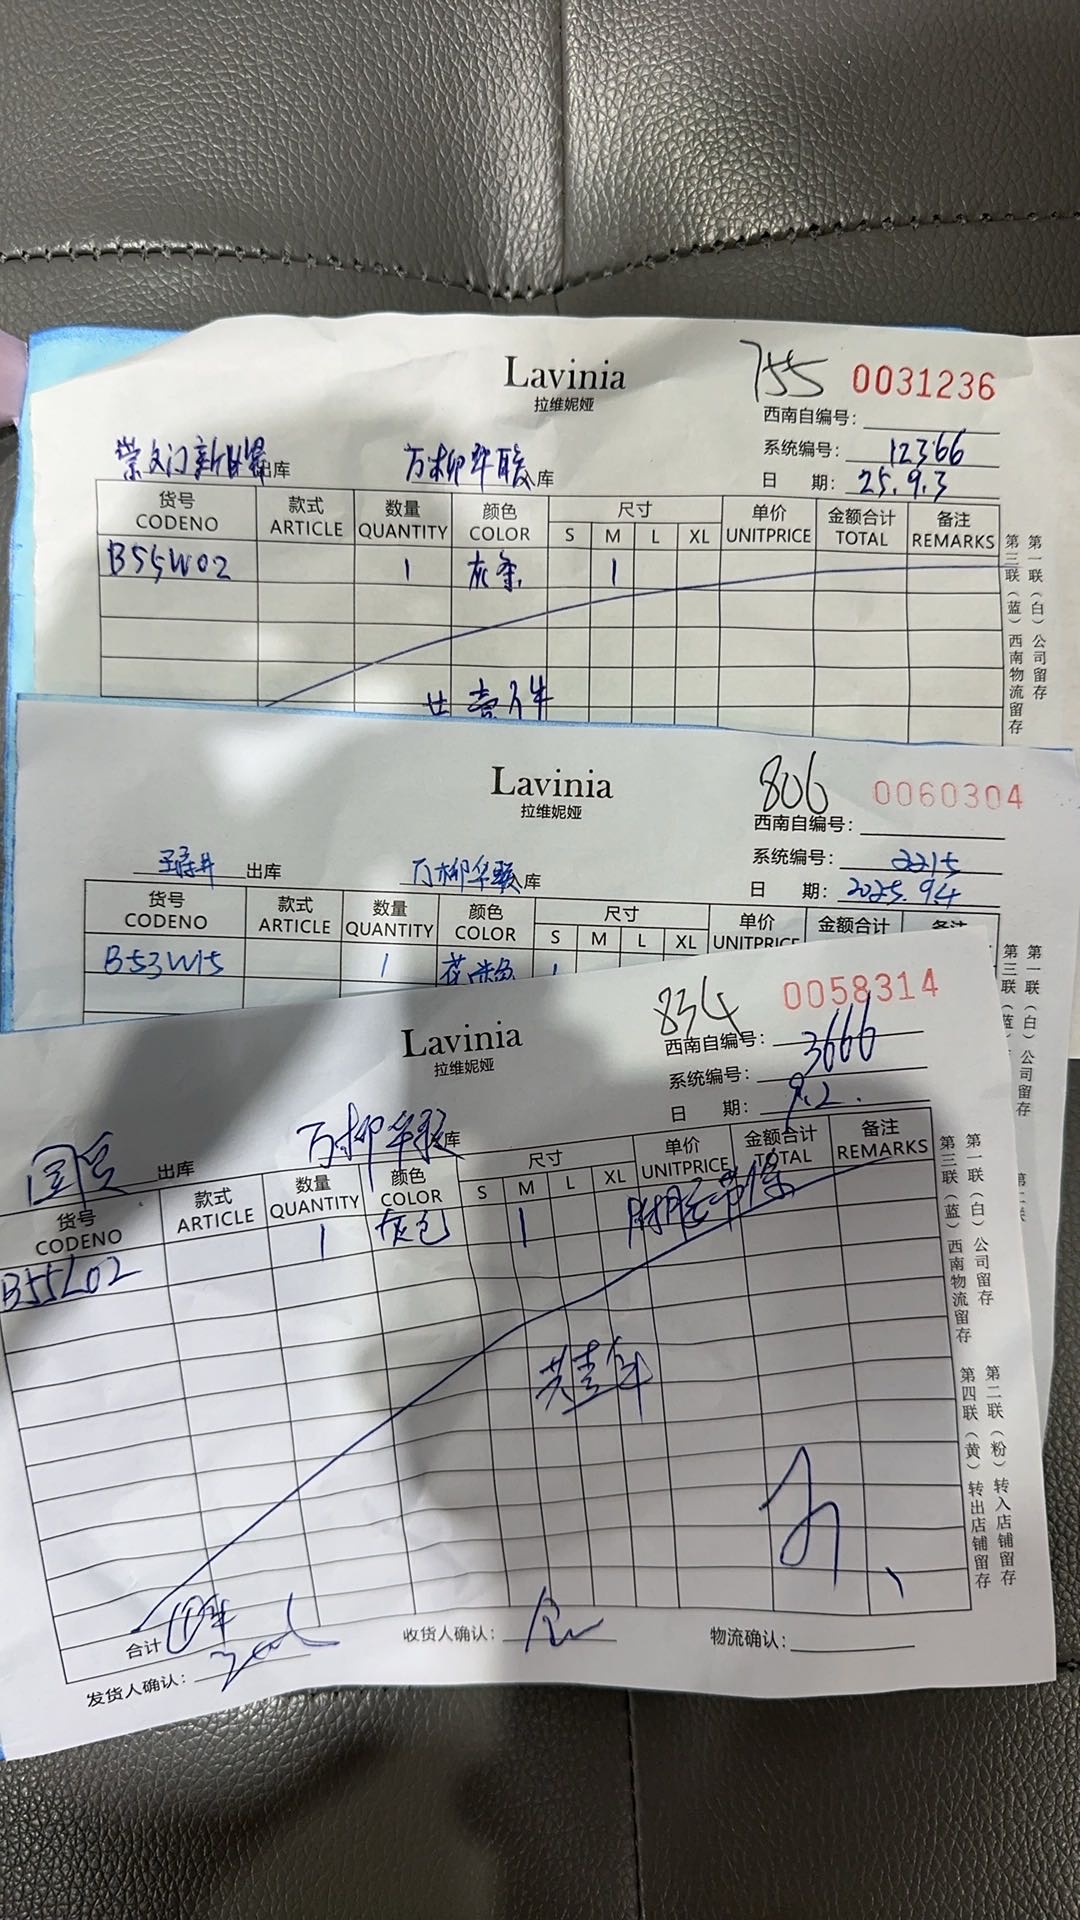 Lavinia
拉维妮娅
755 0031236
西南自编号:
系统编号: 12366
日 期: 25.9.3
崇文门新世界出库 万柳华联库
货号 款式 数量 颜色 尺寸 单价 金额合计 备注
CODENO ARTICLE QUANTITY COLOR S M L XL UNITPRICE TOTAL REMARKS
B55W02 1 灰条 1
共壹件
第一联(白)公司留存
第三联(蓝)西南物流留存
Lavinia
拉维妮娅
806 0060304
西南自编号:
系统编号: 2215
日 期: 2025.9.4
王府井 出库 万柳华联库
货号 款式 数量 颜色 尺寸 单价 金额合计 备注
CODENO ARTICLE QUANTITY COLOR S M L XL UNITPRICE
B53W15 1 1
第一联(白)公司留存
第三联(蓝)
第二联
Lavinia
拉维妮娅
834 0058314
西南自编号:
系统编号: 3666
日 期: 9.2.
出库 万柳华联库
货号 款式 数量 颜色 尺寸 单价 金额合计 备注
CODENO ARTICLE QUANTITY COLOR S M L XL UNITPRICE TOTAL REMARKS
B55L02 1 灰色 1
共壹件
第一联(白)公司留存
第三联(蓝)西南物流留存
第二联(粉)转入店铺留存
第四联(黄)转出店铺留存
合计 ①件
发货人确认: 收货人确认: 物流确认: